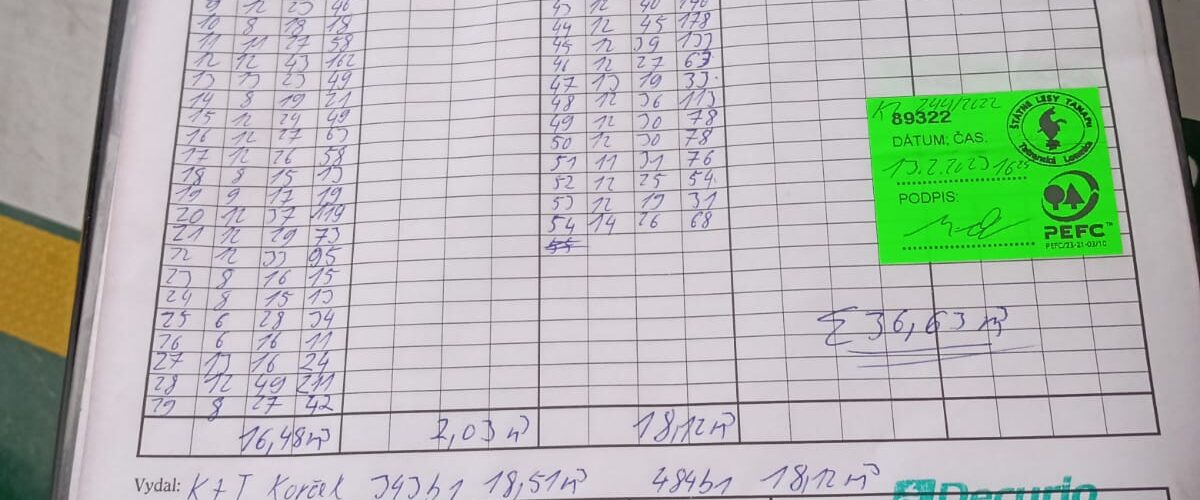 9 12 23 46 43 12 40 140
10 8 18 18 44 12 45 178
11 11 27 58 45 12 39 133
12 12 43 162 46 12 27 63
13 13 23 49 47 13 19 33
14 8 19 21 48 12 36 113
15 12 24 49 49 12 30 78
16 12 27 63 50 12 30 78
17 12 26 58 51 11 31 76
18 8 15 13 52 12 25 54
19 9 17 19 53 12 19 31
20 12 37 119 54 14 26 68
21 12 29 73 55
22 12 33 95
23 8 16 15
24 8 15 13
25 6 28 34
26 6 16 11
27 13 16 24
28 12 49 211
29 8 27 42
16,48 m³ 2,03 m³ 18,12 m³
Vydal: K+T Korček 343b1 18,51 m³ 484b1 18,12 m³
89322
DÁTUM, ČAS:
13.2.2023 16 25
PODPIS:
ŠTÁTNE LESY TANAPu
Tatranská Lomnica
PEFC™
PEFC/23-21-03/10
Σ 36,63 m³
Decurio